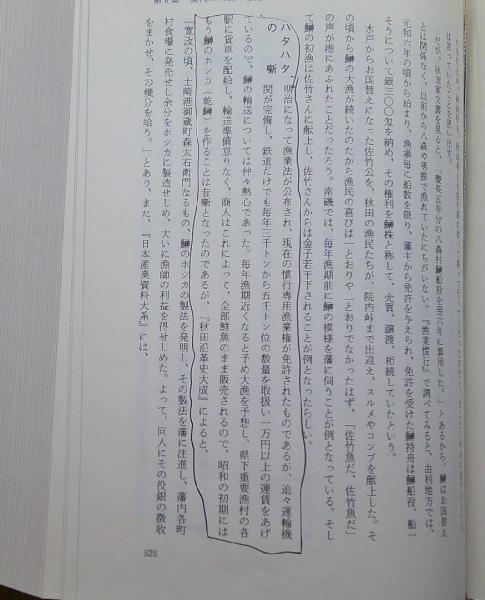 だが、秋田家文書を見ると、「慶長五年分の八森村鰰船役を翌六年に算用した。」とあるから、鰰はお国替え
とは関係なく、以前から八森や男鹿で漁れていたにちがいない。『漁業慣行』で調べてみると、由利地方では、
元和六年の頃から始まり、漁場毎に船数を限り、藩主から免許を与えられ、免許を受けた鰰持舟は鰰船役、船一
そうについて銀三〇〇匁を納め、その権利を鰰株と称して、売買、譲渡、相続していたという。
水戸からお国替えになった佐竹公を、秋田の漁民たちが、院内峠まで出迎え、スルメやコンブを献上した。そ
の頃から鰰の大漁が続いたのだから漁民の喜びは一とおりや二とおりでなかったはず、「佐竹魚だ、佐竹魚だ」
の声が港にあふれたことだったろう。南磯では、毎年漁期前に鰰の模様を藩に伺うことが例となっている。そし
て鰰の初漁は佐竹さんに献上し、佐竹さんからは金子若干下されることが例となったらしい。
ハタハタ
の　噺
明治になって漁業法が公布され、現在の慣行専用漁業権が許可されたものであるが、追々運輸機
関が完備し、鉄道だけでも毎年三千トンから五千トン位の数量を取扱い一万円以上の運賃をあげ
ているので、鰰の輸送については仲々熱心であった。毎年漁期近くなると予め大漁を予想し、県下重要漁村の各
駅に貨車を配給し、輸送準備怠りなく、商人はこれによって、全部鮮魚のまま販売されるので、昭和の初期には
もう鰰のホシカ（乾鰰）を作ることは昔噺となったのであるが、『秋田沿革史大成』によると、
「寛政の頃、土崎港御蔵町森太右衛門なるもの、鰰のホシカの製法を発明し、その製法を藩に注進し、藩内各町
村食場に発売せし余分をホシカに製造せしめ、大いに漁師の利益を得せしめた。よって、同人にその役銀の徴収
をまかせ、その幾分を給う。」とあり、また、『日本産業資料大系』には、
525